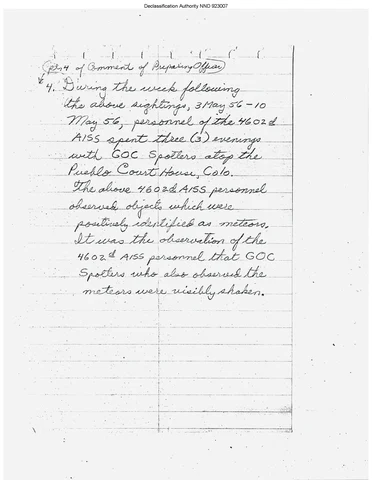 Declassification Authority NND 923007
(pts 4 of Comments of Preparing Officer)
4. During the week following
the above sightings, 3 May 56 - 10
May 56, personnel of the 4602d
AISS spent three (3) evenings
with GOC Spotters atop the
Pueblo Court House, Colo.
The above 4602d AISS personnel
observed objects which were
positively identified as meteors.
It was the observation of the
4602d AISS personnel that GOC
Spotters who also observed the
meteors were visibly shaken.